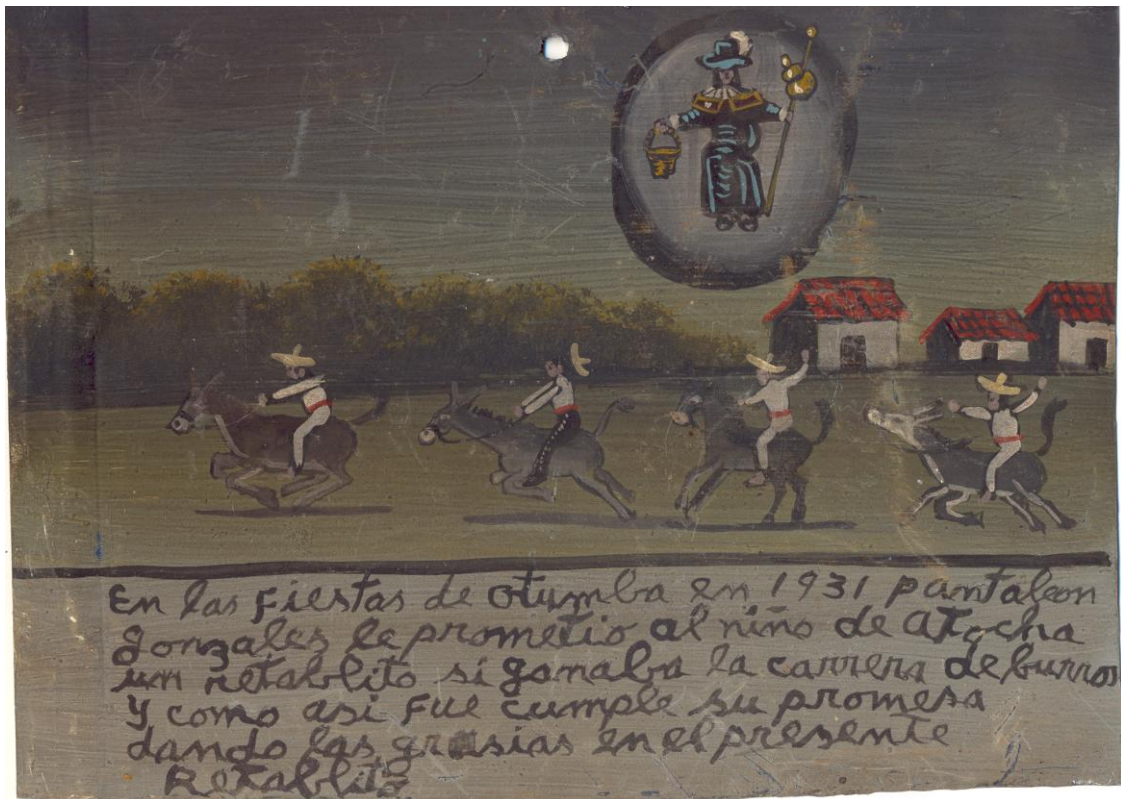 En las fiestas de otumba en 1931 pantaleon
gonzales le prometio al niño de atocha
un retablito si ganaba la carrera de burros
y como asi fue cumple su promesa
dando las grasias en el presente
Retablito